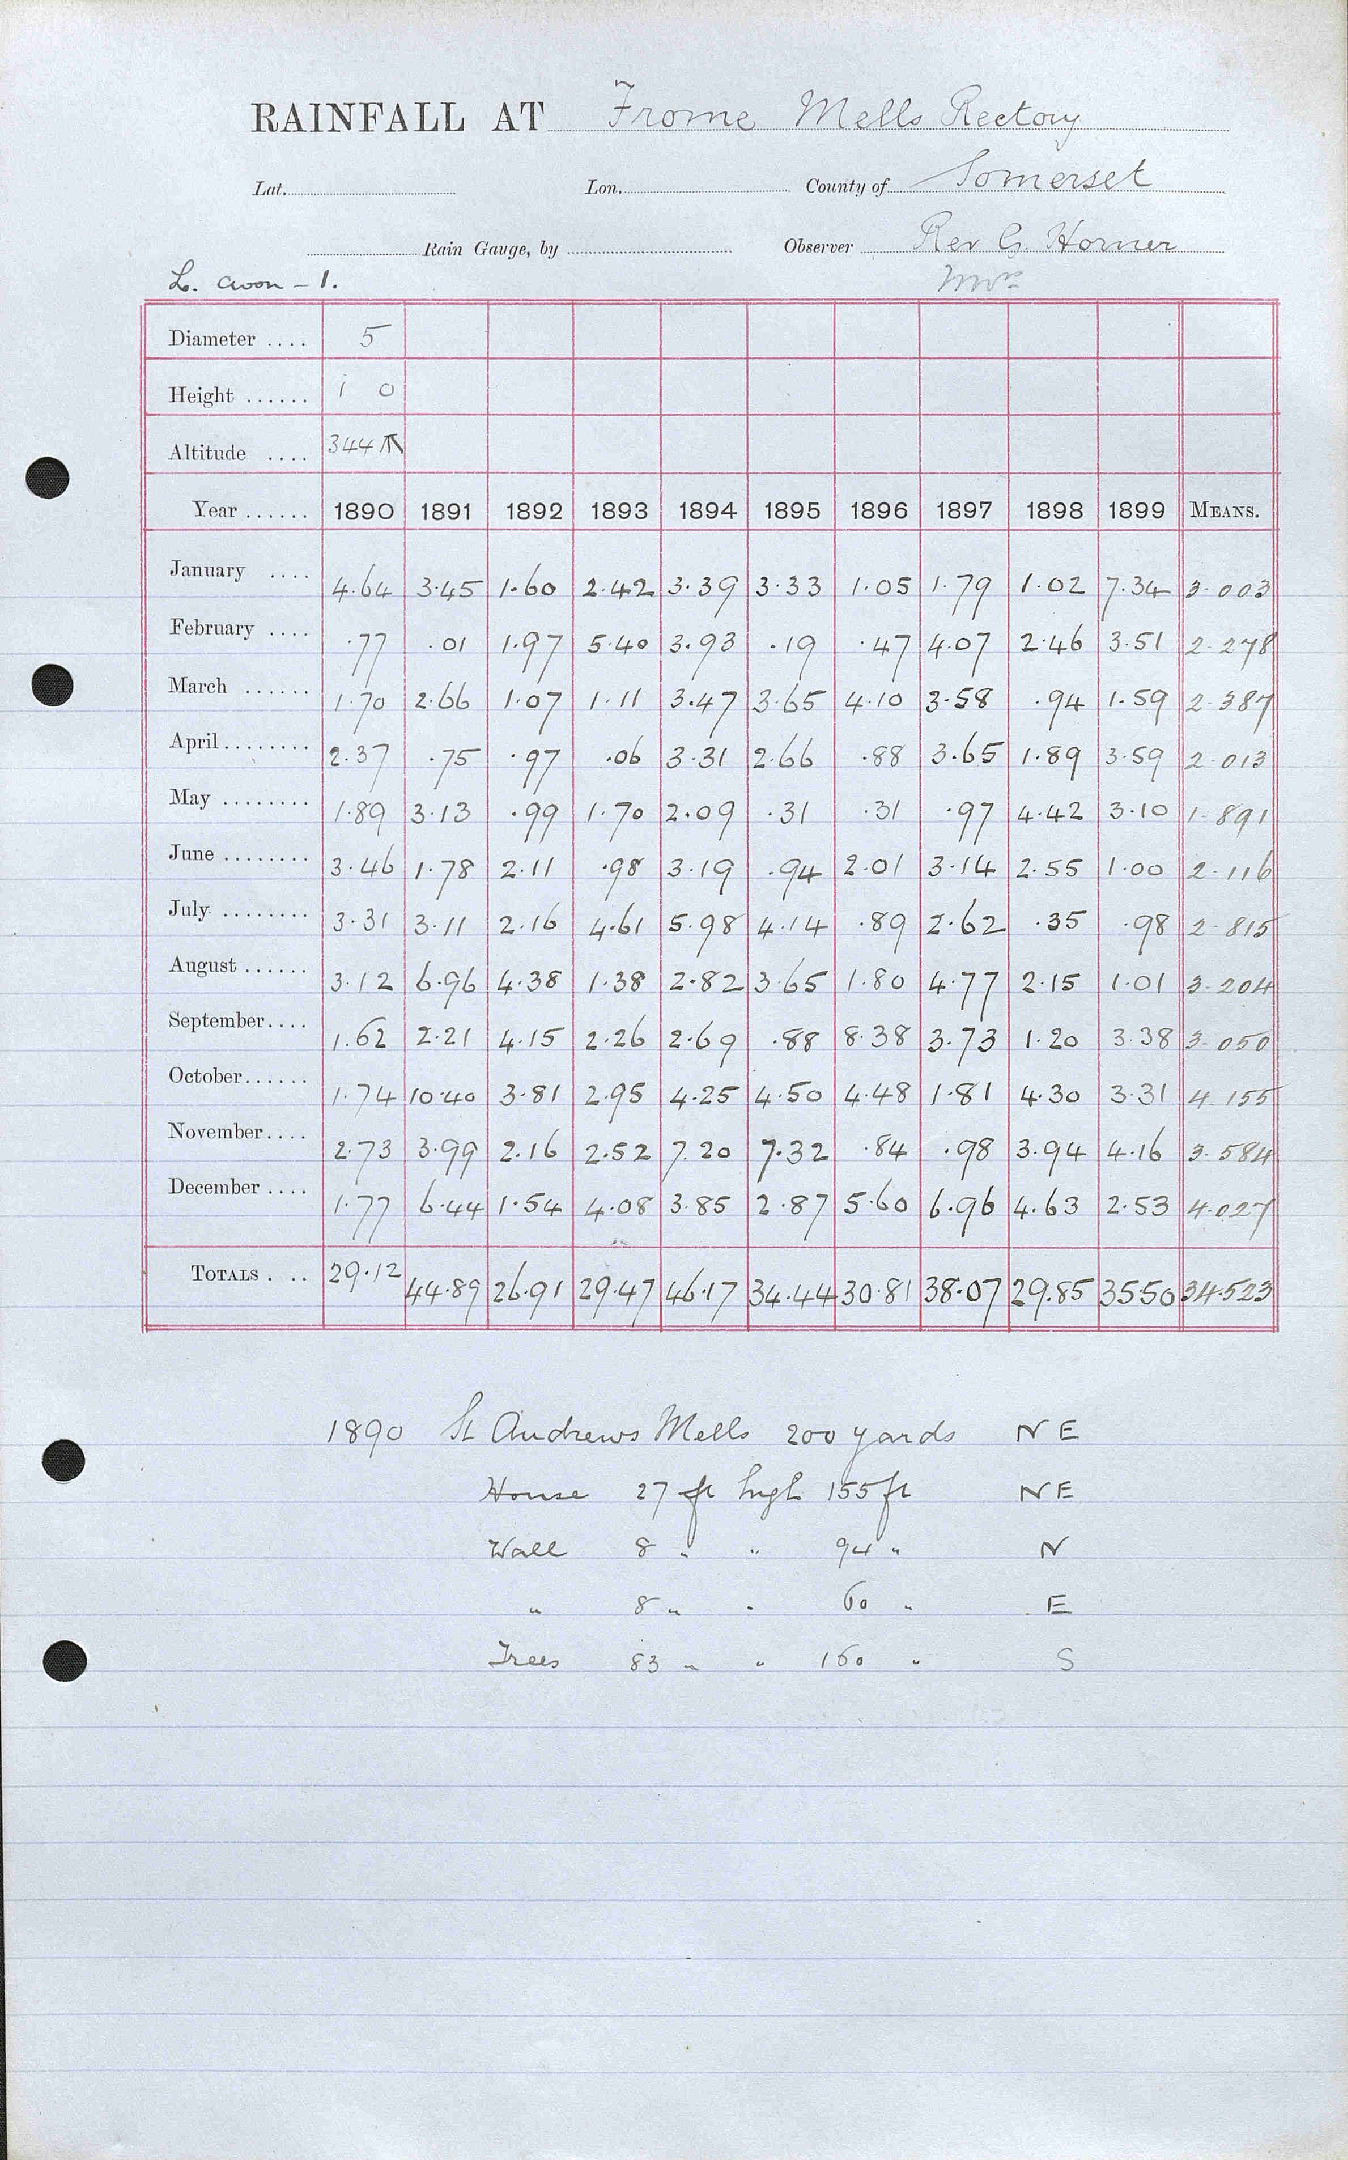 RAINFALL AT Frome Mells Rectory
Lat. Lon. County of Somerset
Rain Gauge, by Observer Rev G. Horner
L. Avon - 1. Mrs
Diameter .... 5
Height ...... 1 0
Altitude .... 344
Year ...... 1890 1891 1892 1893 1894 1895 1896 1897 1898 1899 MEANS.
January .... 4.64 3.45 1.60 2.42 3.39 3.33 1.05 1.79 1.02 7.34 3.003
February .... .77 .01 1.97 5.40 3.93 .19 .47 4.07 2.46 3.51 2.278
March ...... 1.70 2.66 1.07 1.11 3.47 3.65 4.10 3.58 .94 1.59 2.387
April........ 2.37 .75 .97 .06 3.31 2.66 .88 3.65 1.89 3.59 2.013
May ........ 1.89 3.13 .99 1.70 2.09 .31 .31 .97 4.42 3.10 1.891
June ........ 3.46 1.78 2.11 .98 3.19 .94 2.01 3.14 2.55 1.00 2.116
July ........ 3.31 3.11 2.16 4.61 5.98 4.14 .89 2.62 .35 .98 2.815
August ...... 3.12 6.96 4.38 1.38 2.82 3.65 1.80 4.77 2.15 1.01 3.204
September.... 1.62 2.21 4.15 2.26 2.69 .88 8.38 3.73 1.20 3.38 3.050
October...... 1.74 10.40 3.81 2.95 4.25 4.50 4.48 1.81 4.30 3.31 4.155
November.... 2.73 3.99 2.16 2.52 7.20 7.32 .84 .98 3.94 4.16 3.584
December .... 1.77 6.44 1.54 4.08 3.85 2.87 5.60 6.96 4.63 2.53 4.027
TOTALS . .. 29.12 44.89 26.91 29.47 46.17 34.44 30.81 38.07 29.85 35.50 34.523
1890 St Andrews Mells 200 yards NE
House 27 ft high 155 ft NE
Wall 8 " " 94 " N
" 8 " " 60 " E
Trees 83 " " 160 " S